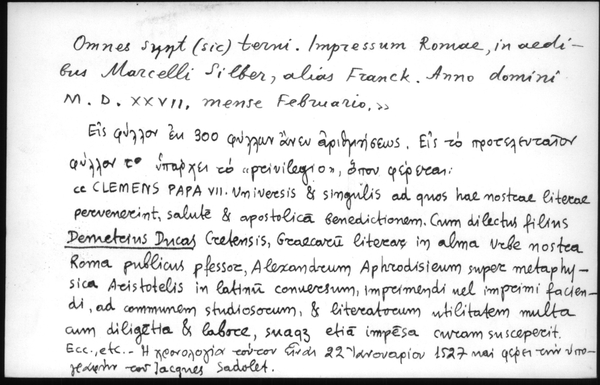 Omnes sunt (sic) terni. Impressum Romae, in aedi-
bus Marcelli Silber, alias Franck. Anno domini
M. D. XXVII, mense Februario.»
Εἰς φύλλον ἐκ 300 φύλλων ἄνευ ἀριθμήσεως. Εἰς τὸ προτελευταῖον
φύλλον το ὑπάρχει τὸ «privilegio», ὅπου φέρεται:
« CLEMENS PAPA VII. Universis & singulis ad quos hae nostrae literae
pervenerint, salutē & apostolicā Benedictionem. Cum dilectus filius
Demetrius Ducas Cretensis, Graecarū literarꝝ in alma Urbe nostra
Roma publicus pfessor, Alexandrum Aphrodisieum super metaphy-
sica Aristotelis in latinū conversum, imprimendi uel imprimi facien-
di, ad communem studiosorum, & literatorum utilitatem multa
cum diligētia & labore, suaqz etiā impēsa curam susceperit.
Ecc., etc. - Η χρονολογία τούτου εἶναι 22 Ἰανουαρίου 1527 και φέρει την ὑπο-
γραφήν του Jacques Sadolet.